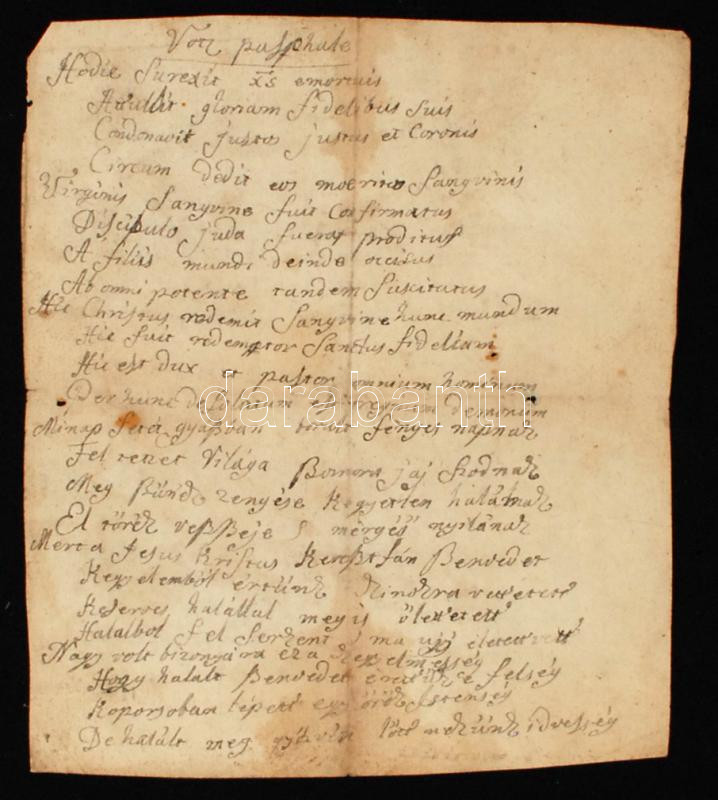 Vox paschale
Hodie Surexit Xs emortuis
Attulit gloriam fidelibus Suis
Condonavit justos justus et Coronis
Circum dedit eos moeritos Sangvinis
Virginis Sangvine fuit Confirmatus
Discipulo juda fuerat proditus
A filiis mundi deinde occisus
Ab omnipotente tandem Suscitatus
Hic Christus redemit Sangvine hunc mundum
Hic fuit redemptor Sanctus fidelium
Hic est dux et pastor omnium hominum
Per hunc
darabanth
Minap setét gyászban fényes napnak
Fel tetzet Világa Bomora jaj Szodnak
Meg Bűnök kegyetlen halálnak
El töröt veßßeje S mérges nyilának
Mert a Jesus Kristus Kereßtfán ßenvedet
Kegyelemböl értünk
Keserves halállal meg is ölettetett
Halálbol fel Serkent S ma uj életett vett
Nagy volt bizonyára ez a
Hogy halált ßenvedet e felség
Koporsoban lépett egy örök Istenség
De halált meg lött nekünk idvesség